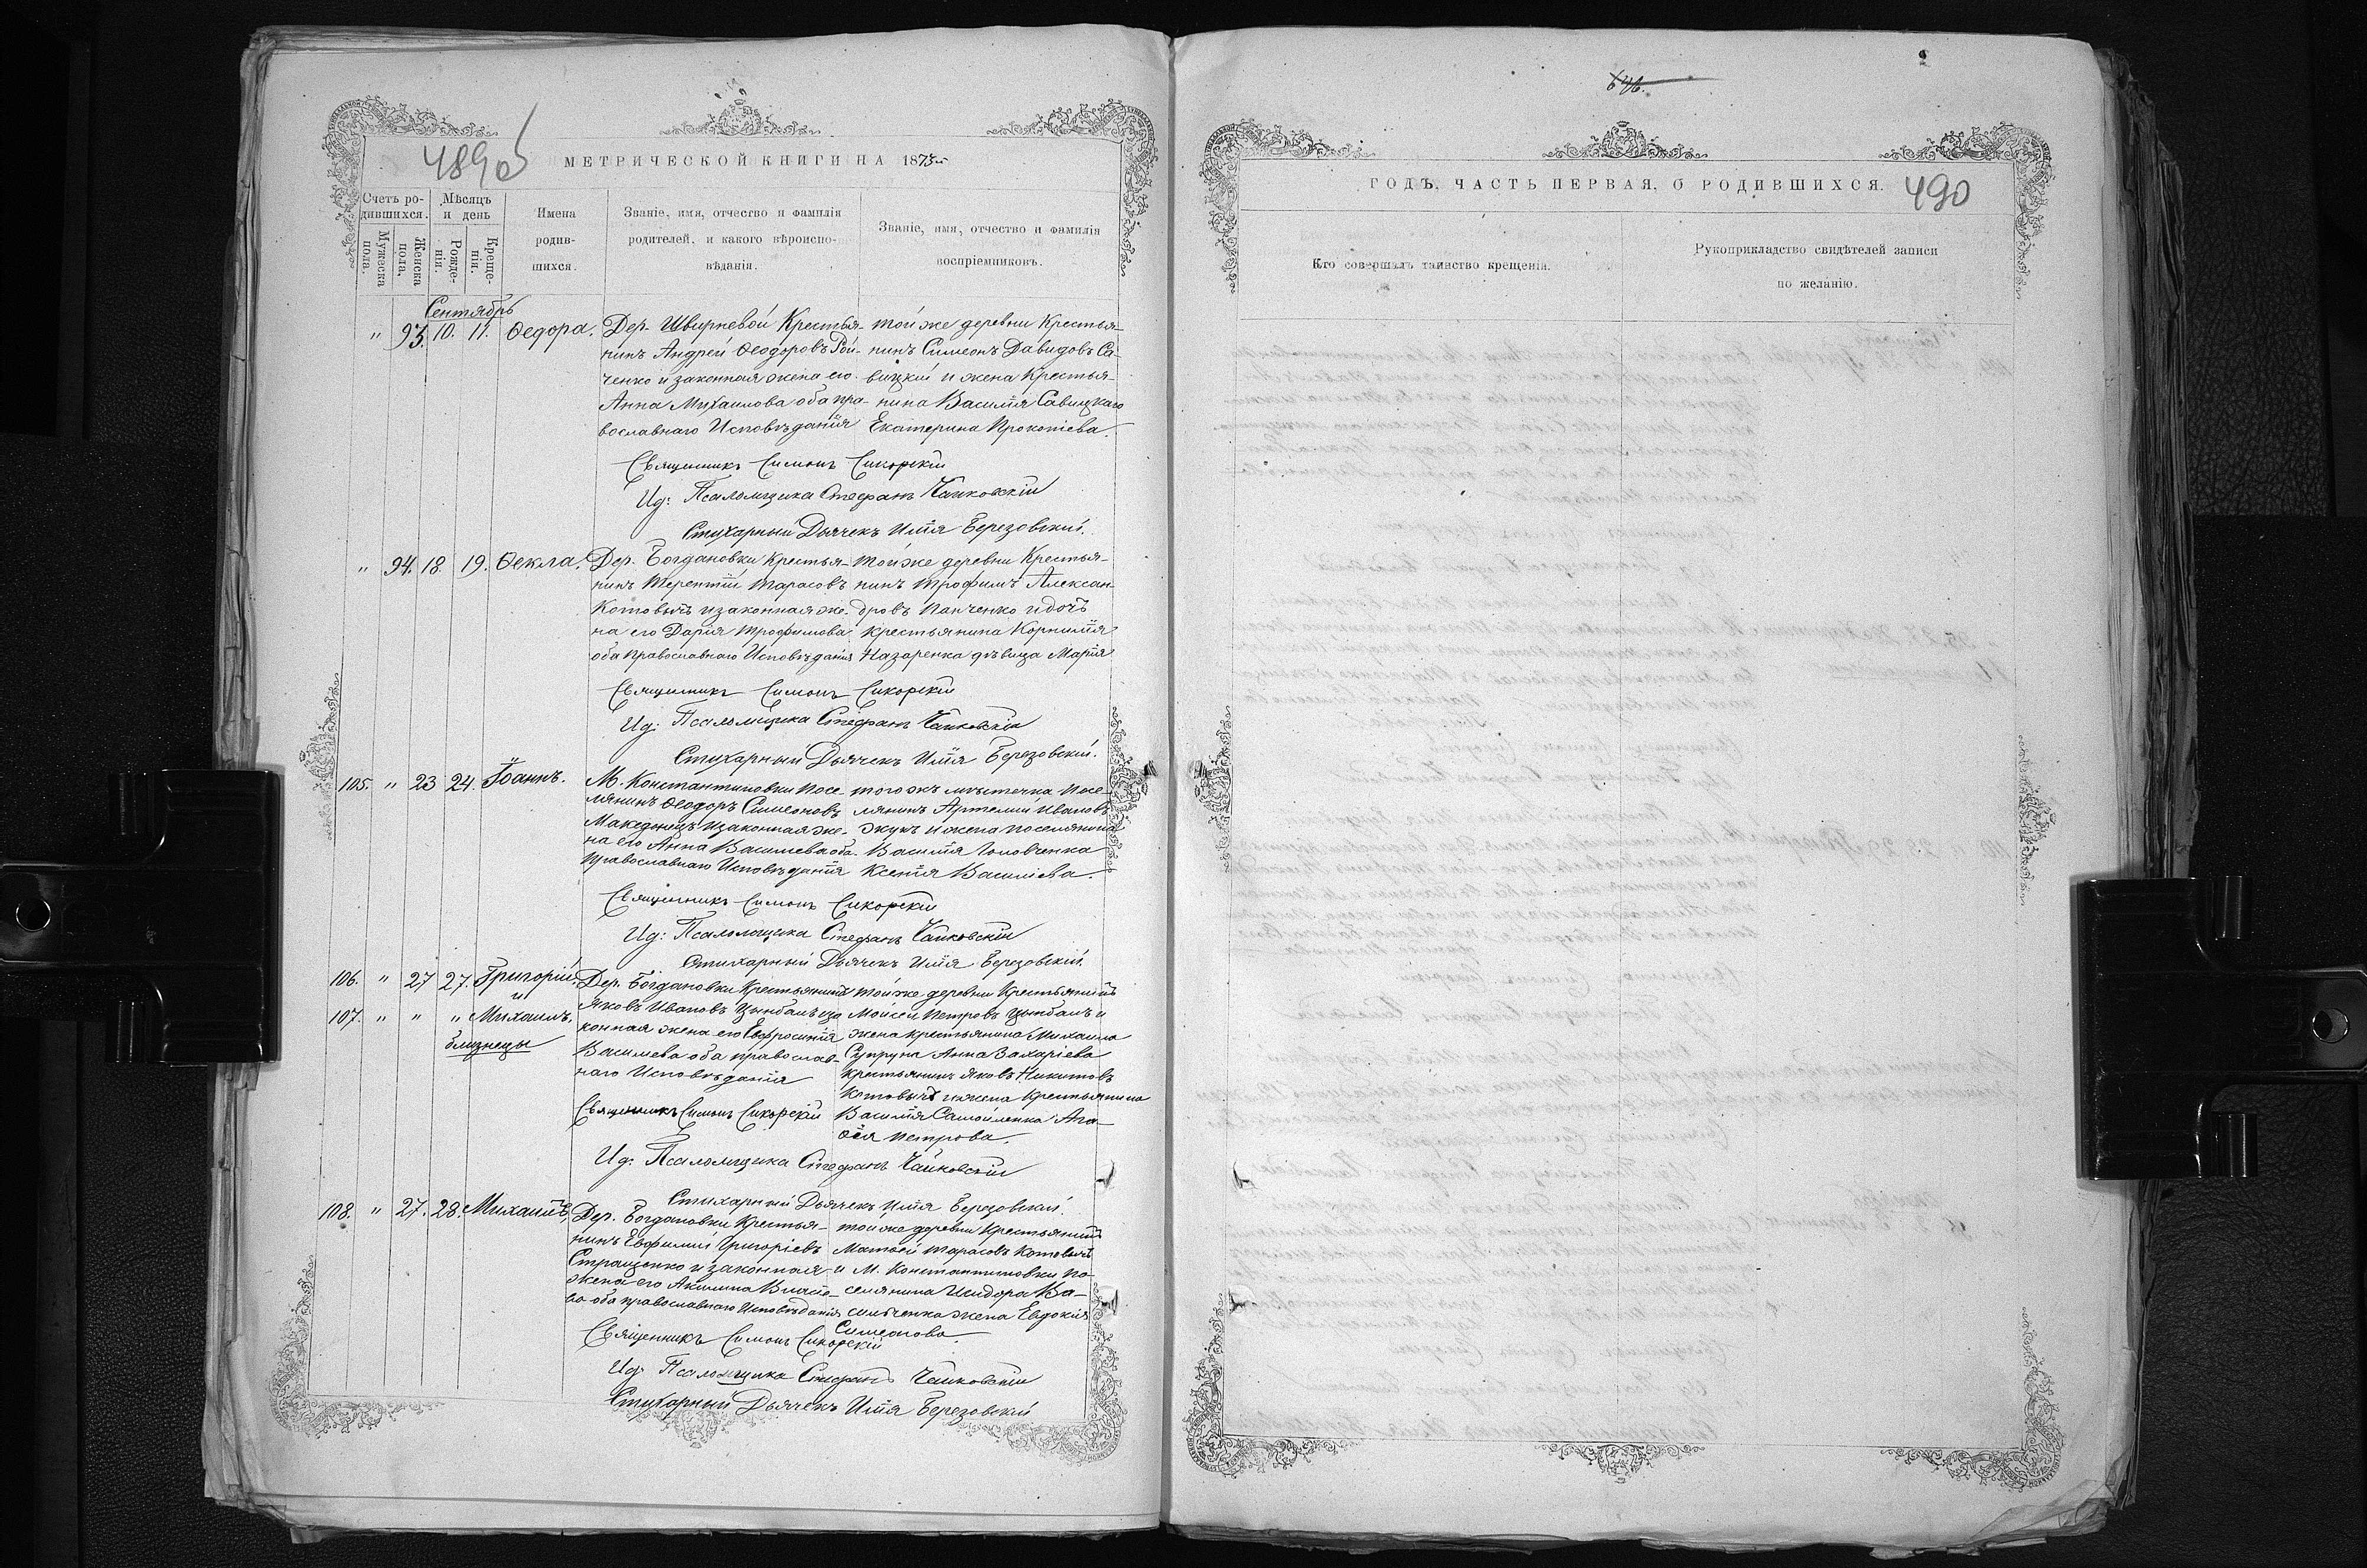 489об
МЕТРИЧЕСКОЙ КНИГИ НА 1875
Счетъ ро-
дившихся.
Мужеска пола.
Женска пола.
Мѣсяцъ
и день
Рожде-
нія.
Креще-
нія.
Имена
родив-
шихся.
Званіе, имя, отчество и фамилія
родителей, и какого вѣроиспо-
вѣданія.
Званіе, имя, отчество и фамилія
воспріемниковъ.
Сентябрь
" 93. 10. 11. Ѳедора.
Дер. Швирневой Крестья-
нинъ Андрей Ѳеодоровъ Рой-
ченко и законная жена его
Анна Михаилова оба пра-
вославнаго Исповѣданія
той же деревни Крестья-
нинъ Симеонъ Давидовъ Са-
вицкій и жена Крестья-
нина Василія Савицкаго
Екатерина Прокопіева.
Священникъ Симонъ Сикорскій
Ид: Псаломщика Стефанъ Чайковскій
Стихарный Дьячекъ Илія Березовскій.
" 94. 18. 19. Ѳекла.
Дер. Богдановки Крестья-
нинъ Терентій Тарасовъ
Котовичъ и законная же-
на его Дарія Трофимова
оба Православнаго Исповѣданія
той же деревни Крестья-
нинъ Трофимъ Алексан-
дровъ Панченко и дочь
крестьянина Корнилія
Назаренка дѣвица Марія
Священникъ Симонъ Сикорскій
Ид: Псаломщика Стефанъ Чайковскій
Стихарный Дьячекъ Илія Березовскій.
105. " 23 24. Іоаннъ.
М. Константиновки Посе-
лянинъ Ѳеодоръ Симеоновъ
Македонецъ и законная же-
на его Анна Василева оба
Православнаго Исповѣданія
того жъ мѣстечка посе-
лянинъ Артемій Ивановъ
Жукъ и жена поселянина
Василія Головченка
Ксенія Василіева.
Священникъ Симонъ Сикорскій
Ид: Псаломщика Стефанъ Чайковскій
Стихарный Дьячекъ Илія Березовскій.
106. " 27 27. Григорій,
и
107. " " " Михаилъ,
близнецы
Дер. Богдановки Крестьянинъ
Яковъ Ивановъ Цымбалъ и за
конная жена его Евфросинія
Василева оба православ-
наго Исповѣданія
той же деревни Крестьянинъ
Моисей Петровъ Цымбалъ и
жена крестьянина Михаила
Супруна Анна Захаріева
крестьянинъ Яковъ Никитовъ
Котовичъ и жена Крестьянина
Василія Самойленка Ага-
ѳія Петрова.
Священникъ Симонъ Сикорскій
Ид: Псаломщика Стефанъ Чайковскій
Стихарный Дьячекъ Илія Березовскій.
108. " 27. 28. Михаилъ,
Дер. Богдановки Крестья-
нинъ Евфимій Григоріевъ
Стращенко и законная
жена его Акилина
ва оба православнаго Исповѣданія
той же деревни Крестьянинъ
Матѳей Тарасовъ Котовичъ
и М. Константиновки По-
селянина Исидора Ва-
сильченка жена Евдокія
Симеонова
Священникъ Симонъ Сикорскій
Ид: Псаломщика Стефанъ Чайковскій
Стихарный Дьячекъ Илія Березовскій
ГОДЪ, ЧАСТЬ ПЕРВАЯ, О РОДИВШИХСЯ.
490
Кто совершалъ таинство крещенія.
Рукоприкладство свидѣтелей записи
по желанію.